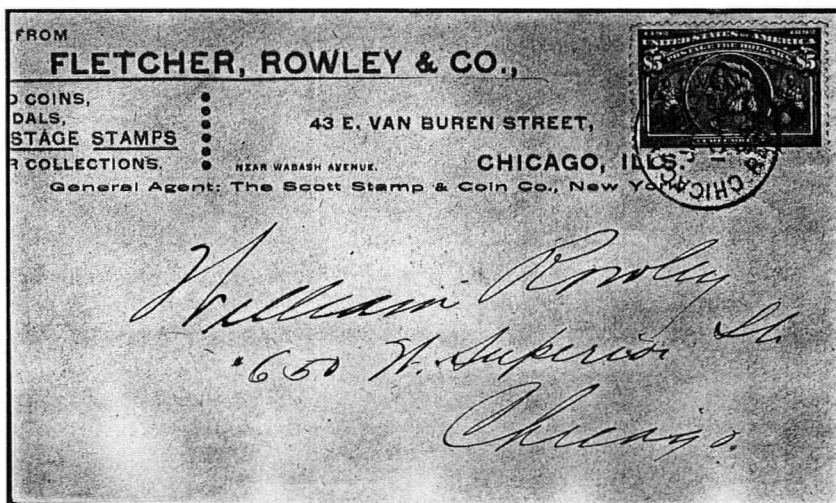 FROM
FLETCHER, ROWLEY & CO.,
D COINS,
DALS,
STAGE STAMPS
R COLLECTIONS.
43 E. VAN BUREN STREET,
NEAR WABASH AVENUE.
CHICAGO, ILLS.
General Agent: The Scott Stamp & Coin Co., New York
1492 1892
UNITED STATES OF AMERICA
POSTAGE FIVE DOLLARS
$5 $5
CHICAGO
William Rowley
650 W. Superior St.
Chicago.